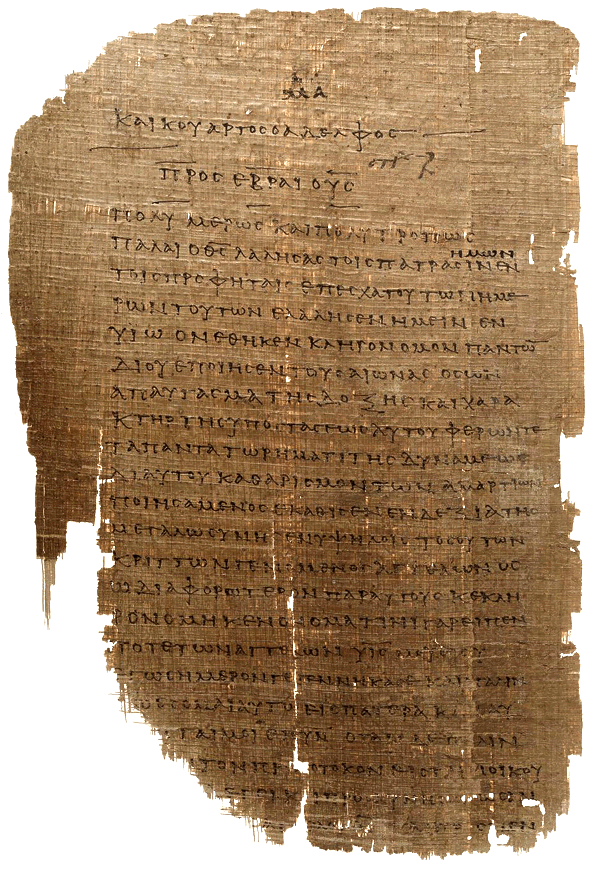 ΜΑ
ΚΑΙ ΚΟΥΑΡΤΟϹ Ο ΑΔΕΛΦΟϹ
ΠΡΟϹ ΕΒΡΑΙΟΥϹ
ΠΟΛΥΜΕΡΩϹ ΚΑΙ ΠΟΛΥΤΡΟΠΩϹ
ΗΜΩΝ
ΠΑΛΑΙ Ο Θ̅Ϲ̅ ΛΑΛΗϹΑϹ ΤΟΙϹ ΠΑΤΡΑϹΙΝ ΕΝ
ΤΟΙϹ ΠΡΟΦΗΤΑΙϹ ΕΠ ΕϹΧΑΤΟΥ ΤΩΝ ΗΜΕ
ΡΩΝ ΤΟΥΤΩΝ ΕΛΑΛΗϹΕΝ ΗΜΕΙΝ ΕΝ
ΥΙΩ ΟΝ ΕΘΗΚΕΝ ΚΛΗΡΟΝΟΜΟΝ ΠΑΝΤΩ̅
ΔΙ ΟΥ ΕΠΟΙΗϹΕΝ ΤΟΥϹ ΑΙΩΝΑϹ ΟϹ ΩΝ
ΑΠΑΥΓΑϹΜΑ ΤΗϹ ΔΟΞΗϹ ΚΑΙ ΧΑΡΑ
ΚΤΗΡ ΤΗϹ ΥΠΟϹΤΑϹΕΩϹ ΑΥΤΟΥ ΦΕΡΩΝ ΤΕ
ΤΑ ΠΑΝΤΑ ΤΩ ΡΗΜΑΤΙ ΤΗϹ ΔΥΝΑΜΕΩϹ
ΔΙ ΑΥΤΟΥ ΚΑΘΑΡΙϹΜΟΝ ΤΩΝ ΑΜΑΡΤΙΩΝ
ΠΟΙΗϹΑΜΕΝΟϹ ΕΚΑΘΙϹΕΝ ΕΝ ΔΕΞΙΑ ΤΗϹ
ΜΕΓΑΛΩϹΥΝΗϹ ΕΝ ΥΨΗΛΟΙϹ ΤΟϹΟΥΤΩΝ
ΚΡΙΤΤΩΝ ΓΕΝΟΜΕΝΟϹ ΑΓΓΕΛΩΝ ΟϹ
Ω ΔΙΑΦΟΡΩΤΕΡΟΝ ΠΑΡ ΑΥΤΟΥϹ ΚΕΚΛΗ
ΡΟΝΟΜΗΚΕΝ ΟΝΟΜΑ ΤΙΝΙ ΓΑΡ ΕΙΠΕΝ
ΠΟΤΕ ΤΩΝ ΑΓΓΕΛΩΝ Υ̅Ι̅Ϲ̅ ΜΟΥ ΕΙ ϹΥ
ΕΓΩ ϹΗΜΕΡΟΝ ΓΕΓΕΝΝΗΚΑ ϹΕ ΚΑΙ ΠΑΛΙΝ
ΕϹΟΜΑΙ ΑΥΤΩ ΕΙϹ ΠΑΤΕΡΑ ΚΑΙ ΑΥ
ΤΑΙ ΜΟΙ ΕΙϹ ΥΝ ΟΤΑΝ ΔΕ ΠΑΛΙΝ
ΤΟΝ ΠΡΩΤΟΤΟΚΟΝ ΕΙϹ ΤΗΝ ΟΙΚΟΥ